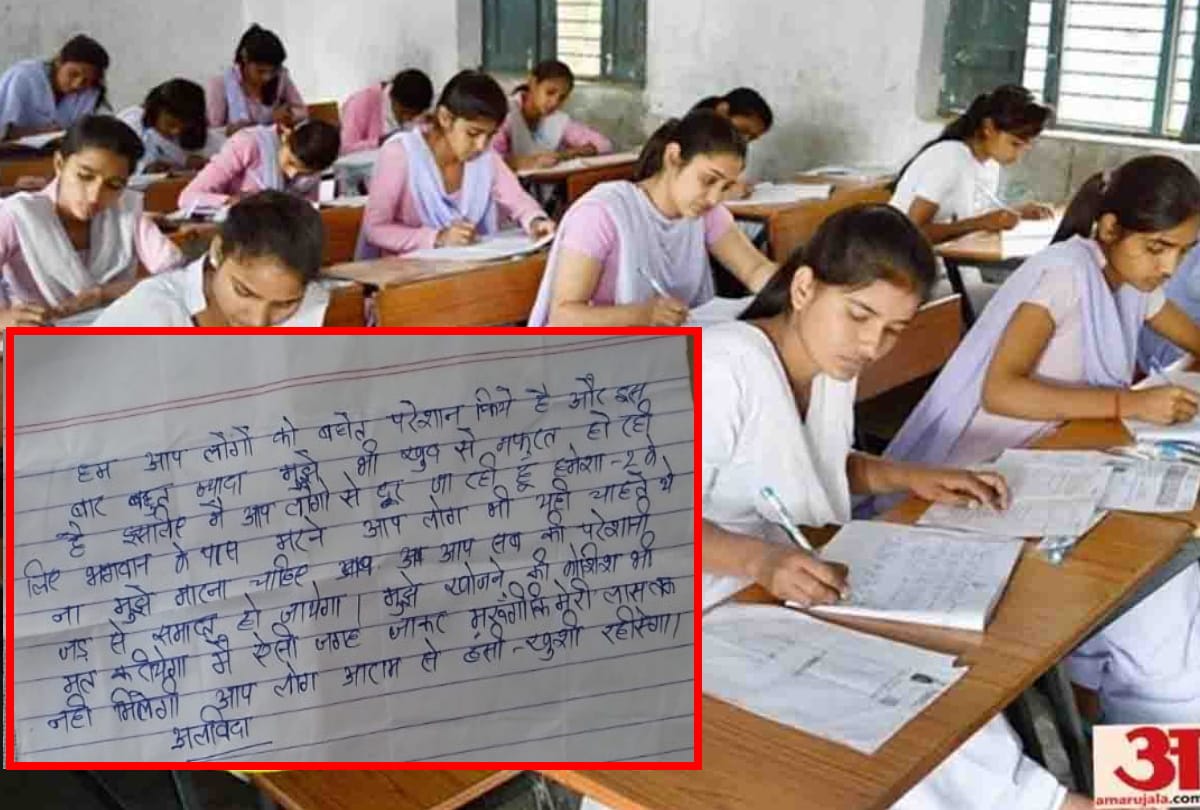 हम आप लोगों को बहोत परेशान किये है और इस
बार बहुत ज्यादा मुझे भी खुद से नफरत हो रही
है इसलिए मै आप लोगो से दूर जा रही हूं हमेशा-२ के
लिए भगवान के पास मरने आप लोग भी यही चाहते थे
ना मुझे मारना चाहिए अब आप सब की परेशानी
जड़ से समाप्त हो जायेगा। मुझे खोजने की कोशिश भी
मत करीयेगा मै ऐसी जगह जाकर मरूंगी कि मेरी लास तक
नही मिलेगी आप लोग आराम से हंसी-खुशी रहीयेगा।
अलविदा
अ
amarujala.com